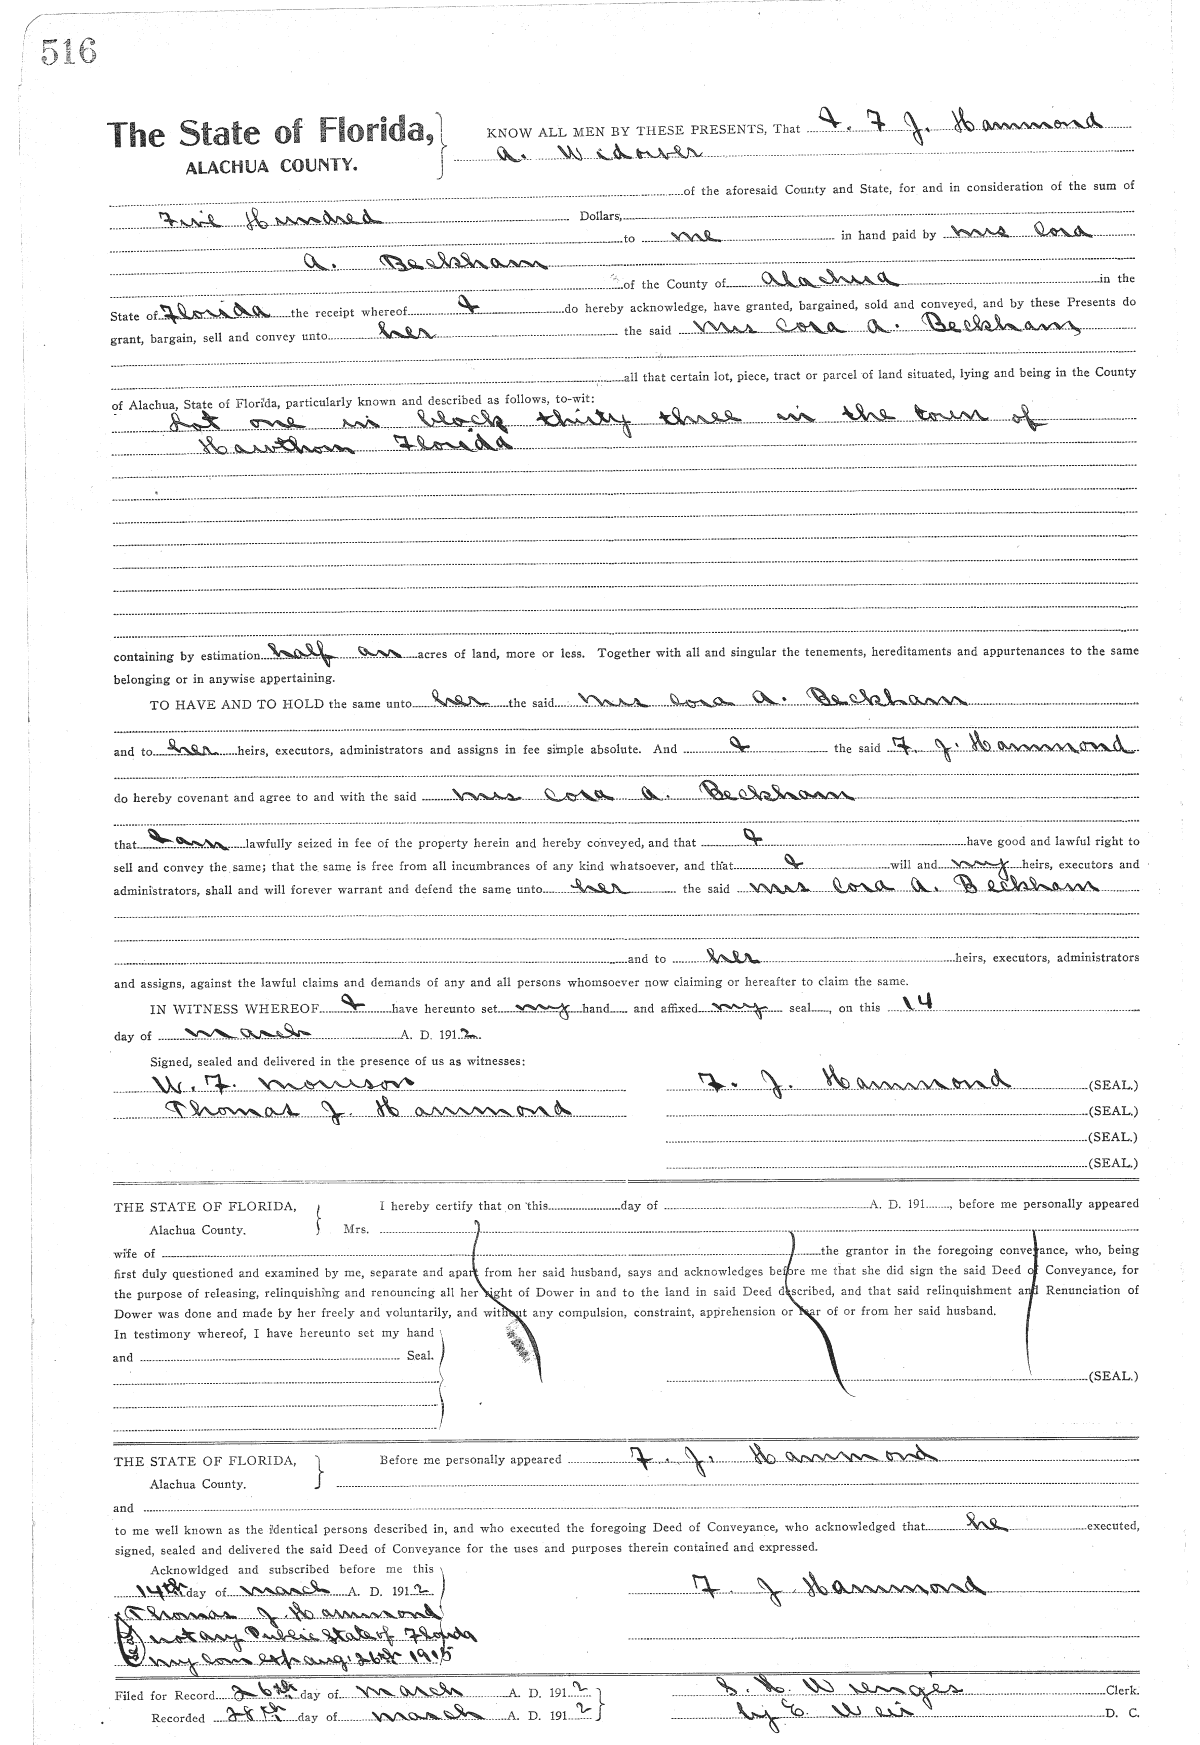 516
The State of Florida, KNOW ALL MEN BY THESE PRESENTS, That I. F J. Hammond
ALACHUA COUNTY. a. Widower
of the aforesaid County and State, for and in consideration of the sum of
Five Hundred Dollars,
to me in hand paid by Mrs Cora
A. Beckham
of the County of Alachua in the
State of Florida the receipt whereof I do hereby acknowledge, have granted, bargained, sold and conveyed, and by these Presents do
grant, bargain, sell and convey unto her the said Mrs Cora A. Beckham
all that certain lot, piece, tract or parcel of land situated, lying and being in the County
of Alachua, State of Florida, particularly known and described as follows, to-wit:
Lot one in block thirty three in the town of
Hawthorn Florida
containing by estimation half an acres of land, more or less. Together with all and singular the tenements, hereditaments and appurtenances to the same
belonging or in anywise appertaining.
TO HAVE AND TO HOLD the same unto her the said Mrs Cora A. Beckham
and to her heirs, executors, administrators and assigns in fee simple absolute. And I the said F. J. Hammond
do hereby covenant and agree to and with the said Mrs Cora A. Beckham
that I am lawfully seized in fee of the property herein and hereby conveyed, and that I have good and lawful right to
sell and convey the same; that the same is free from all incumbrances of any kind whatsoever, and that I will and my heirs, executors and
administrators, shall and will forever warrant and defend the same unto her the said Mrs Cora A. Beckham
and to her heirs, executors, administrators
and assigns, against the lawful claims and demands of any and all persons whomsoever now claiming or hereafter to claim the same.
IN WITNESS WHEREOF I have hereunto set my hand and affixed my seal, on this 14
day of March A. D. 1912.
Signed, sealed and delivered in the presence of us as witnesses:
W. F. Morrison F. J. Hammond (SEAL.)
Thomas J. Hammond (SEAL.)
(SEAL.)
(SEAL.)
THE STATE OF FLORIDA, I hereby certify that on this day of A. D. 191 , before me personally appeared
Alachua County. Mrs.
wife of the grantor in the foregoing conveyance, who, being
first duly questioned and examined by me, separate and apart from her said husband, says and acknowledges before me that she did sign the said Deed of Conveyance, for
the purpose of releasing, relinquishing and renouncing all her right of Dower in and to the land in said Deed described, and that said relinquishment and Renunciation of
Dower was done and made by her freely and voluntarily, and without any compulsion, constraint, apprehension or fear of or from her said husband.
In testimony whereof, I have hereunto set my hand
and Seal.
(SEAL.)
THE STATE OF FLORIDA, Before me personally appeared F. J. Hammond
Alachua County.
and
to me well known as the identical persons described in, and who executed the foregoing Deed of Conveyance, who acknowledged that he executed,
signed, sealed and delivered the said Deed of Conveyance for the uses and purposes therein contained and expressed.
Acknowldged and subscribed before me this
14th day of March A. D. 1912 F J Hammond
Thomas J. Hammond
Notary Public State of Florida
My Com exp aug. 26th 1915
Filed for Record 26th day of March A. D. 1912 S. H. Wienges Clerk.
Recorded 28th day of March A. D. 1912 by E. Weir D. C.